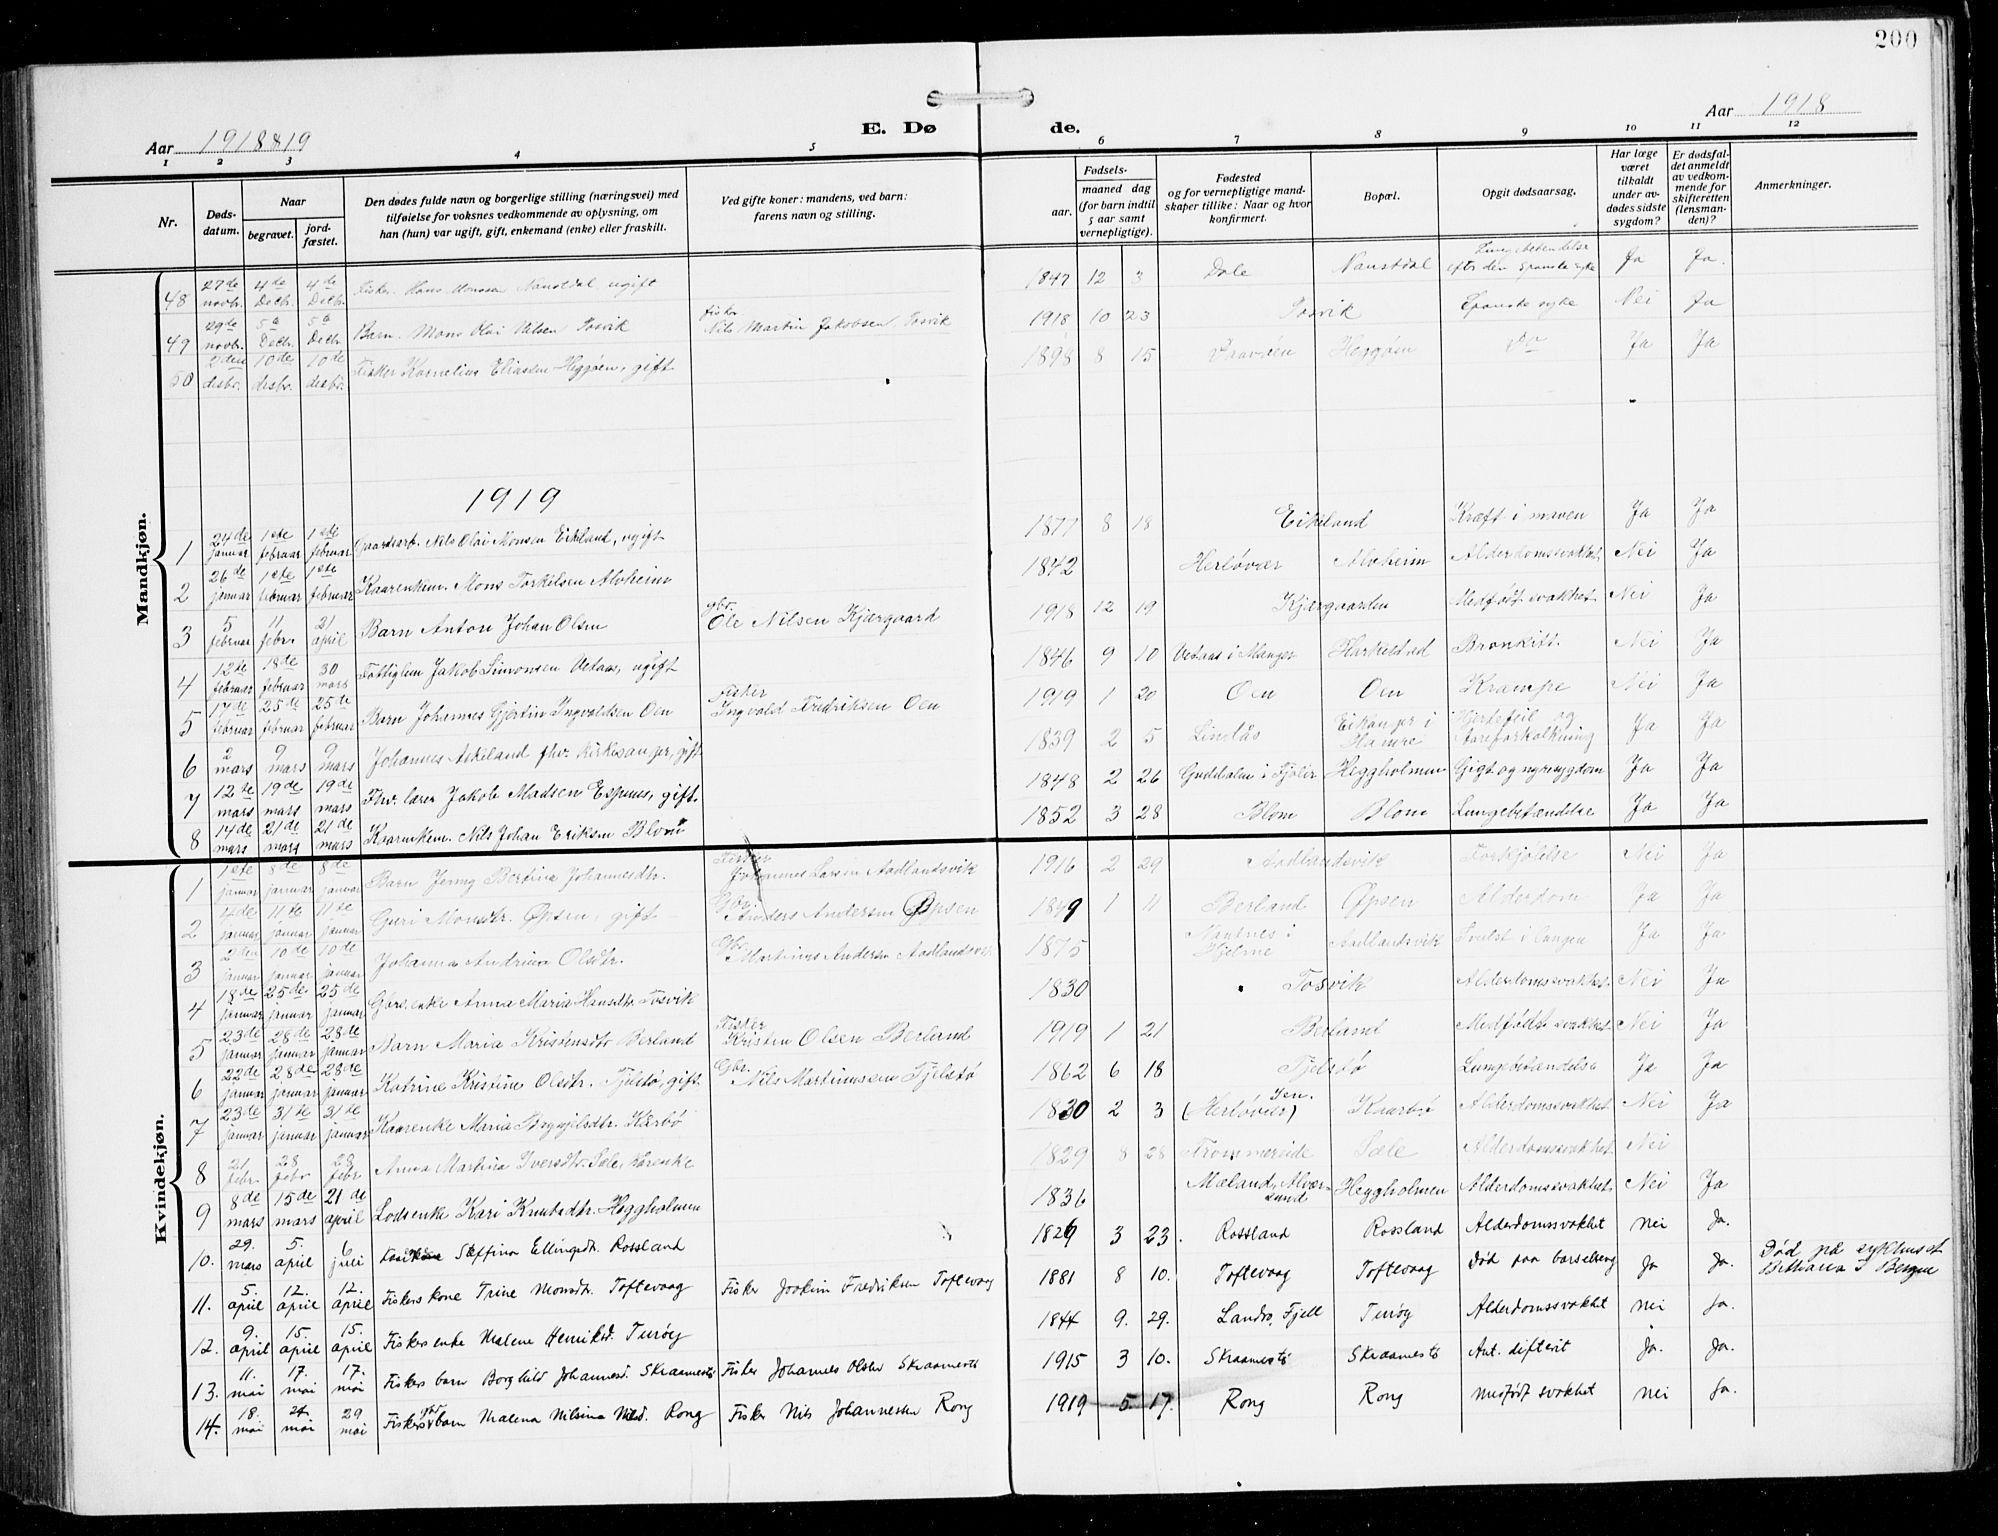 200
Aar 1918 & 19
E. Dø
de.
Aar 1918
1 2 3 4 5 6 7 8 9 10 11 12
Nr.
Døds-
datum.
Naar
begravet.
jord-
fæstet.
Den dødes fulde navn og borgerlige stilling (næringsvei) med
tilføielse for voksnes vedkommende av oplysning, om
han (hun) var ugift, gift, enkemand (enke) eller fraskilt.
Ved gifte koner: mandens, ved barn:
farens navn og stilling.
Fødsels-
aar.
maaned dag
(for barn indtil
5 aar samt
vernepligtige).
Fødested
og for vernepligtige mand-
skaper tillike: Naar og hvor
konfirmert.
Bopæl.
Opgit dødsaarsag.
Har læge
været
tilkaldt
under av-
dødes sidste
sygdom?
Er dødsfal-
det anmeldt
av vedkom-
mende for
skifteretten
(lensman-
den)?
Anmerkninger.
Mandkjøn.
48 27de novbr. 4de Decbr. 4de Decbr. Fisker Hans Monsen Naustdal ugift 1847 12 3 Dole Naustdal Lungebetendelse efter den Spanske syke Ja Ja.
49 29de novbr. 5te Decbr. 5te Decbr. Barn. Mons Olai Nilsen Tosvik Fisker Nils Martin Jakobsen Tosvik 1918 10 23 Tosvik Spanske syke Nei Ja
50 2den desbr. 10de desbr. 10de desbr. Fisker Kornelius Eliasen Heggøen, gift 1898 8 15 Heggøen Do Ja Ja
1919
1 24de januar 1ste februar 1ste februar Gaardarb. Nils Olai Monsen Eikeland, ugift 1877 8 18 Eikeland Kræft i maven Ja Ja
2 26de januar 1ste februar 1ste februar Kaarenkem. Mons Torkilsen Alvheim 1842 Herløvær Alvheim Alderdomssvakhet Nei Ja
3 5 februar 11 febr. 21 april Barn Anton Johan Olsen gbr. Ole Nilsen Kjærgaard 1918 12 19 Kjærgaarden Medfødt svakhet Nei Ja
4 12te februar 18de februar 30 mars Fattiglem Jakob Simonsen Vetaas, ugift 1846 9 10 Vetaas i Manger Hirkelstad Bronkitt. Nei Ja
5 17de februar 25de februar 25de februar Barn Johannes Gjertin Ingvaldsen Oen Fisker Ingvald Fredriksen Oen 1919 1 20 Oen Oen Krampe Nei Ja
6 2 mars 9 mars 9 mars Johannes Askeland fhv. kirkesanger, gift 1839 2 5 Lindås Eikanger i Hamre Hjertefeil og Aareforkalkning Ja Ja
7 12te mars 19de mars 19de mars Fhv. lærer Jakob Madsen Espnes, gift. 1848 2 26 Guddalen i Fjaler Heggholmen Gigt og nyresygdom Ja Ja
8 14de mars 21de mars 21de mars Kaarenkem. Nils Johan Eriksen Blom 1852 3 28 Blom Blom Lungebetændelse Ja Ja
Kvindekjøn.
1 1ste januar 8de januar 8de januar Barn Jenny Bertina Johannesdtr. Fisker Johannes Larsen Aadlandsvik 1916 2 29 Aadlandsvik Forkjølelse Nei Ja
2 4de januar 11te januar 11te januar Guri Monsdtr. Øpsen, gift Gbr. Anders Andersen Øpsen 1849 1 11 Berland Øpsen Alderdom Ja Ja
3 2den januar 10de januar 10de januar Johanna Andrina Olsdtr. Gbr. Martinus Andersen Aadlandsvik 1875 Nautnes i Hjelme Aadlandsvik Svulst i Lungen Ja Ja
4 18de januar 25de januar 25de januar Gbrs. enke Anna Maria Hansdtr Tosvik 1830 Tosvik Alderdomssvakhet. Nei Ja
5 23de januar 28de januar 28de januar Barn Maria Kristensdtr Berland Fisker Kristen Olsen Berland 1919 1 21 Berland Medfødt svakhet Nei Ja
6 22de januar 28de januar 28de januar Katrine Kristine Olsdtr. Fjelstø, gift Gbr. Nils Martinussen Fjelstø 1862 6 18 Fjelstø Lungebetændelse Ja Ja
7 23de januar 31te januar 31te januar Kaarenke Maria Brynjelsdtr. Kårbø 1830 2 3 (Herløvær) Kaarbø Alderdomssvakhet Nei Ja
8 21 febr. 28 febr 28 febr Anna Martina Iversdtr. Sæle, kårenke 1829 8 28 Trommereide Sæle Alderdomssvakhet. Nei
9 8de mars 15de mars 21de april Lodsenke Kari Knutsdtr. Heggholmen 1836 Mæland, Alversund Heggholmen Alderdomssvakhet Nei Ja
10. 29. mars 5. april 6 juli Steffina Ellingsdtr. Rossland 1829 3 23. Rossland Rossland Alderdomssvakhet Nei Ja.
11. 5. april 12. april 12. april Fiskers kone Trine Monsdtr. Toftevaag Fisker Joakim Fredriksen Toftevaag 1881 8 10. Toftevaag Toftevaag Død paa barselseng Ja Ja. Død på sykehuset Betania i Bergen
12. 9. april 15. april 15. april Fiskers enke Malene Henriksd. Turøy 1844 9. 29. Landro, Fjell Turøy Alderdomssvakhet Nei Ja.
13. 11. mai 17. mai 17. mai Fiskers barn Borghild Johannesd. Skraamestø Fisker Johannes Olsen Skraamestø 1915 3 10. Skraamestø Skraamestø Ant. difterit Ja. Ja.
14. 18. mai 24 mai 29 mai Fiskers gbr barn Malena Nilsina Nilsd. Rong Fisker Nils Johannessen Rong 1919 5. 17. Rong Rong Medfødt svakhet Nei Ja.